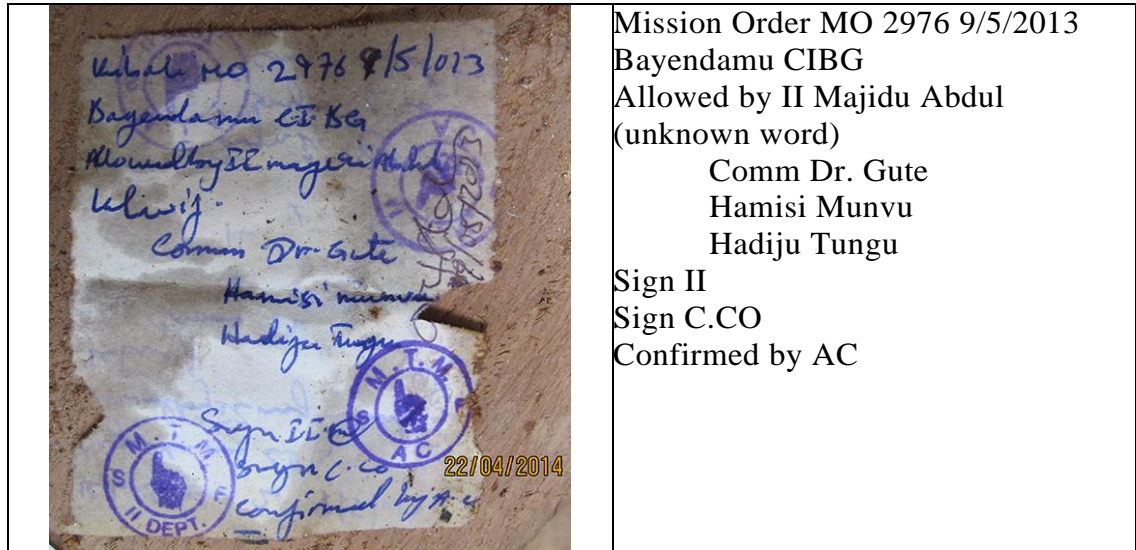 Kibati MO 2976 9/5/013
Bayendamu CI BG
Allowed by II
Comm Dr. Gute
Hamisi munvu
Hadija Tungu
M.T.M
S F
AC
Sign II
Sign C.CO
Confirmed by A C
M.T.M
S F
II DEPT.
22/04/2014
Mission Order MO 2976 9/5/2013
Bayendamu CIBG
Allowed by II Majidu Abdul
(unknown word)
Comm Dr. Gute
Hamisi Munvu
Hadiju Tungu
Sign II
Sign C.CO
Confirmed by AC